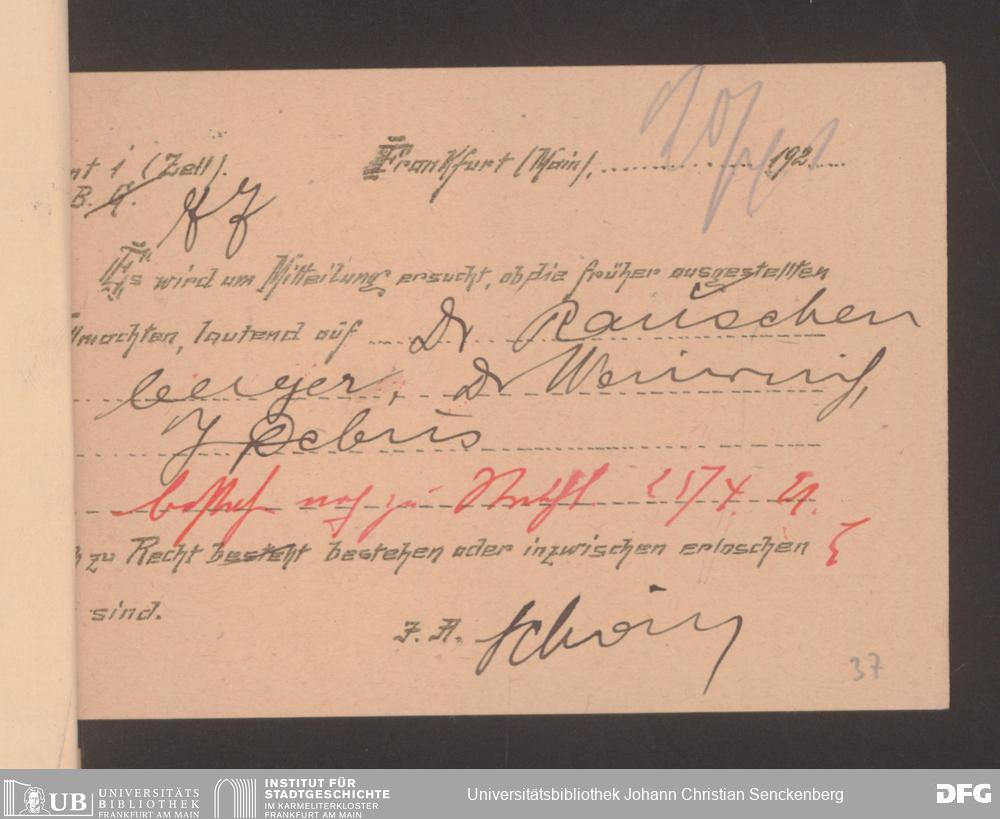 nt 1 (Zeil).
Frankfurt (Main), 20/4 1921
B. G.
Es wird um Mitteilung ersucht, ob die früher ausgestellten
llmachten, lautend auf Dr Rauschen
berger, Dr Weinrich,
J Rebus
besteht noch zu Recht 25/4. 21.
h zu Recht besteht bestehen oder inzwischen erloschen
sind.
J. A. Schön
37
UB UNIVERSITÄTS BIBLIOTHEK FRANKFURT AM MAIN
INSTITUT FÜR STADTGESCHICHTE IM KARMELITERKLOSTER FRANKFURT AM MAIN
Universitätsbibliothek Johann Christian Senckenberg
DFG